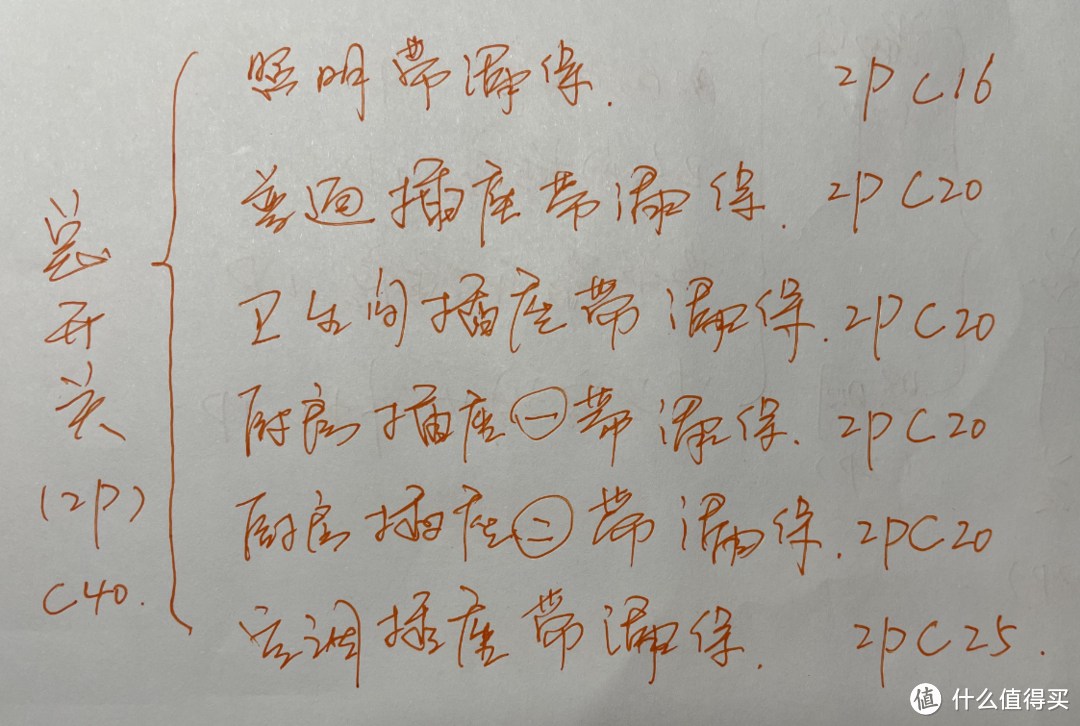 总开关
(2P)
C40.
照明带漏保. 2P C16
普通插座带漏保. 2P C20
卫生间插座带漏保. 2P C20
厨房插座㊀带漏保. 2P C20
厨房插座㊁带漏保. 2P C20
空调插座带漏保. 2P C25.
值 什么值得买